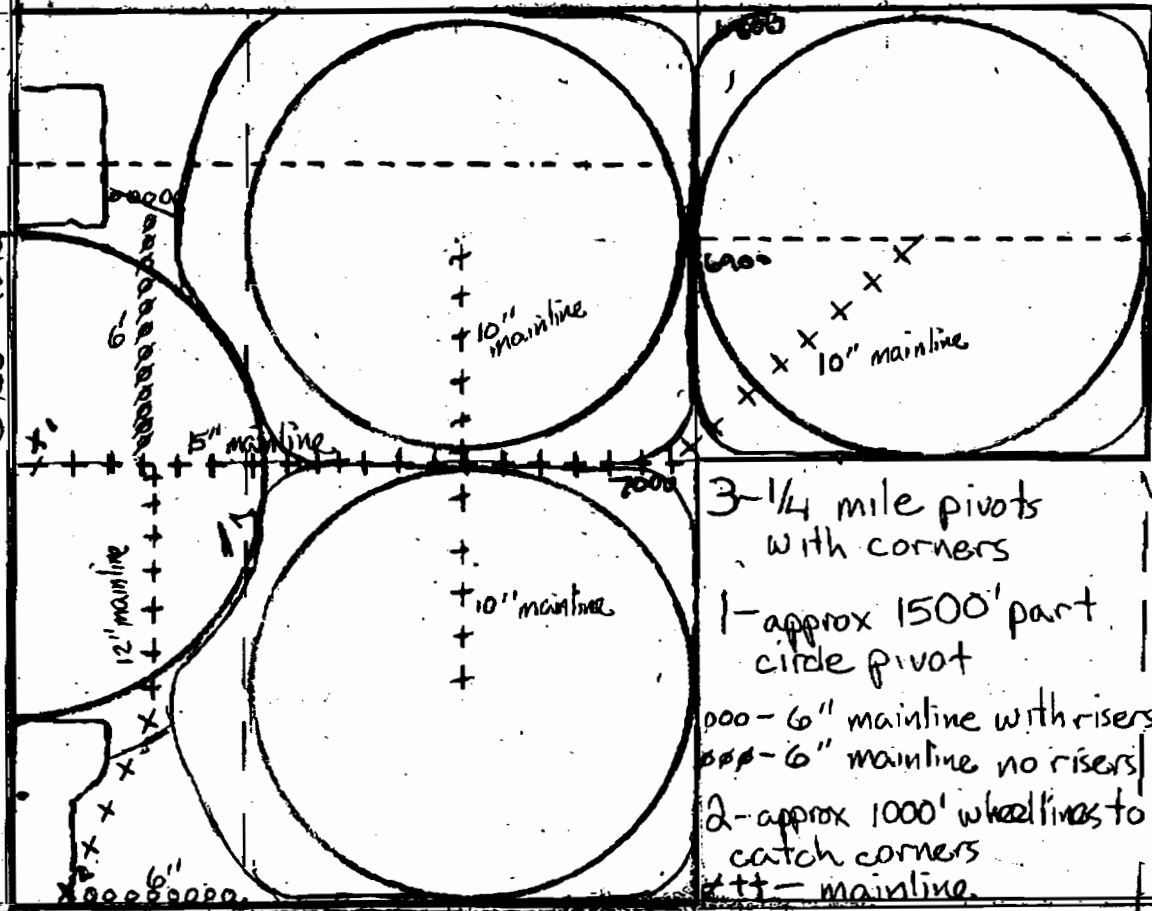 6900
10" mainline
10"
mainline
6"
15" mainline
7000
12" mainline
10" mainline
6"
3-1/4 mile pivots
with corners
1-approx 1500' part
circle pivot
000- 6" mainline with risers
øøø- 6" mainline no risers
2-approx 1000' wheellines to
catch corners
+++- mainline